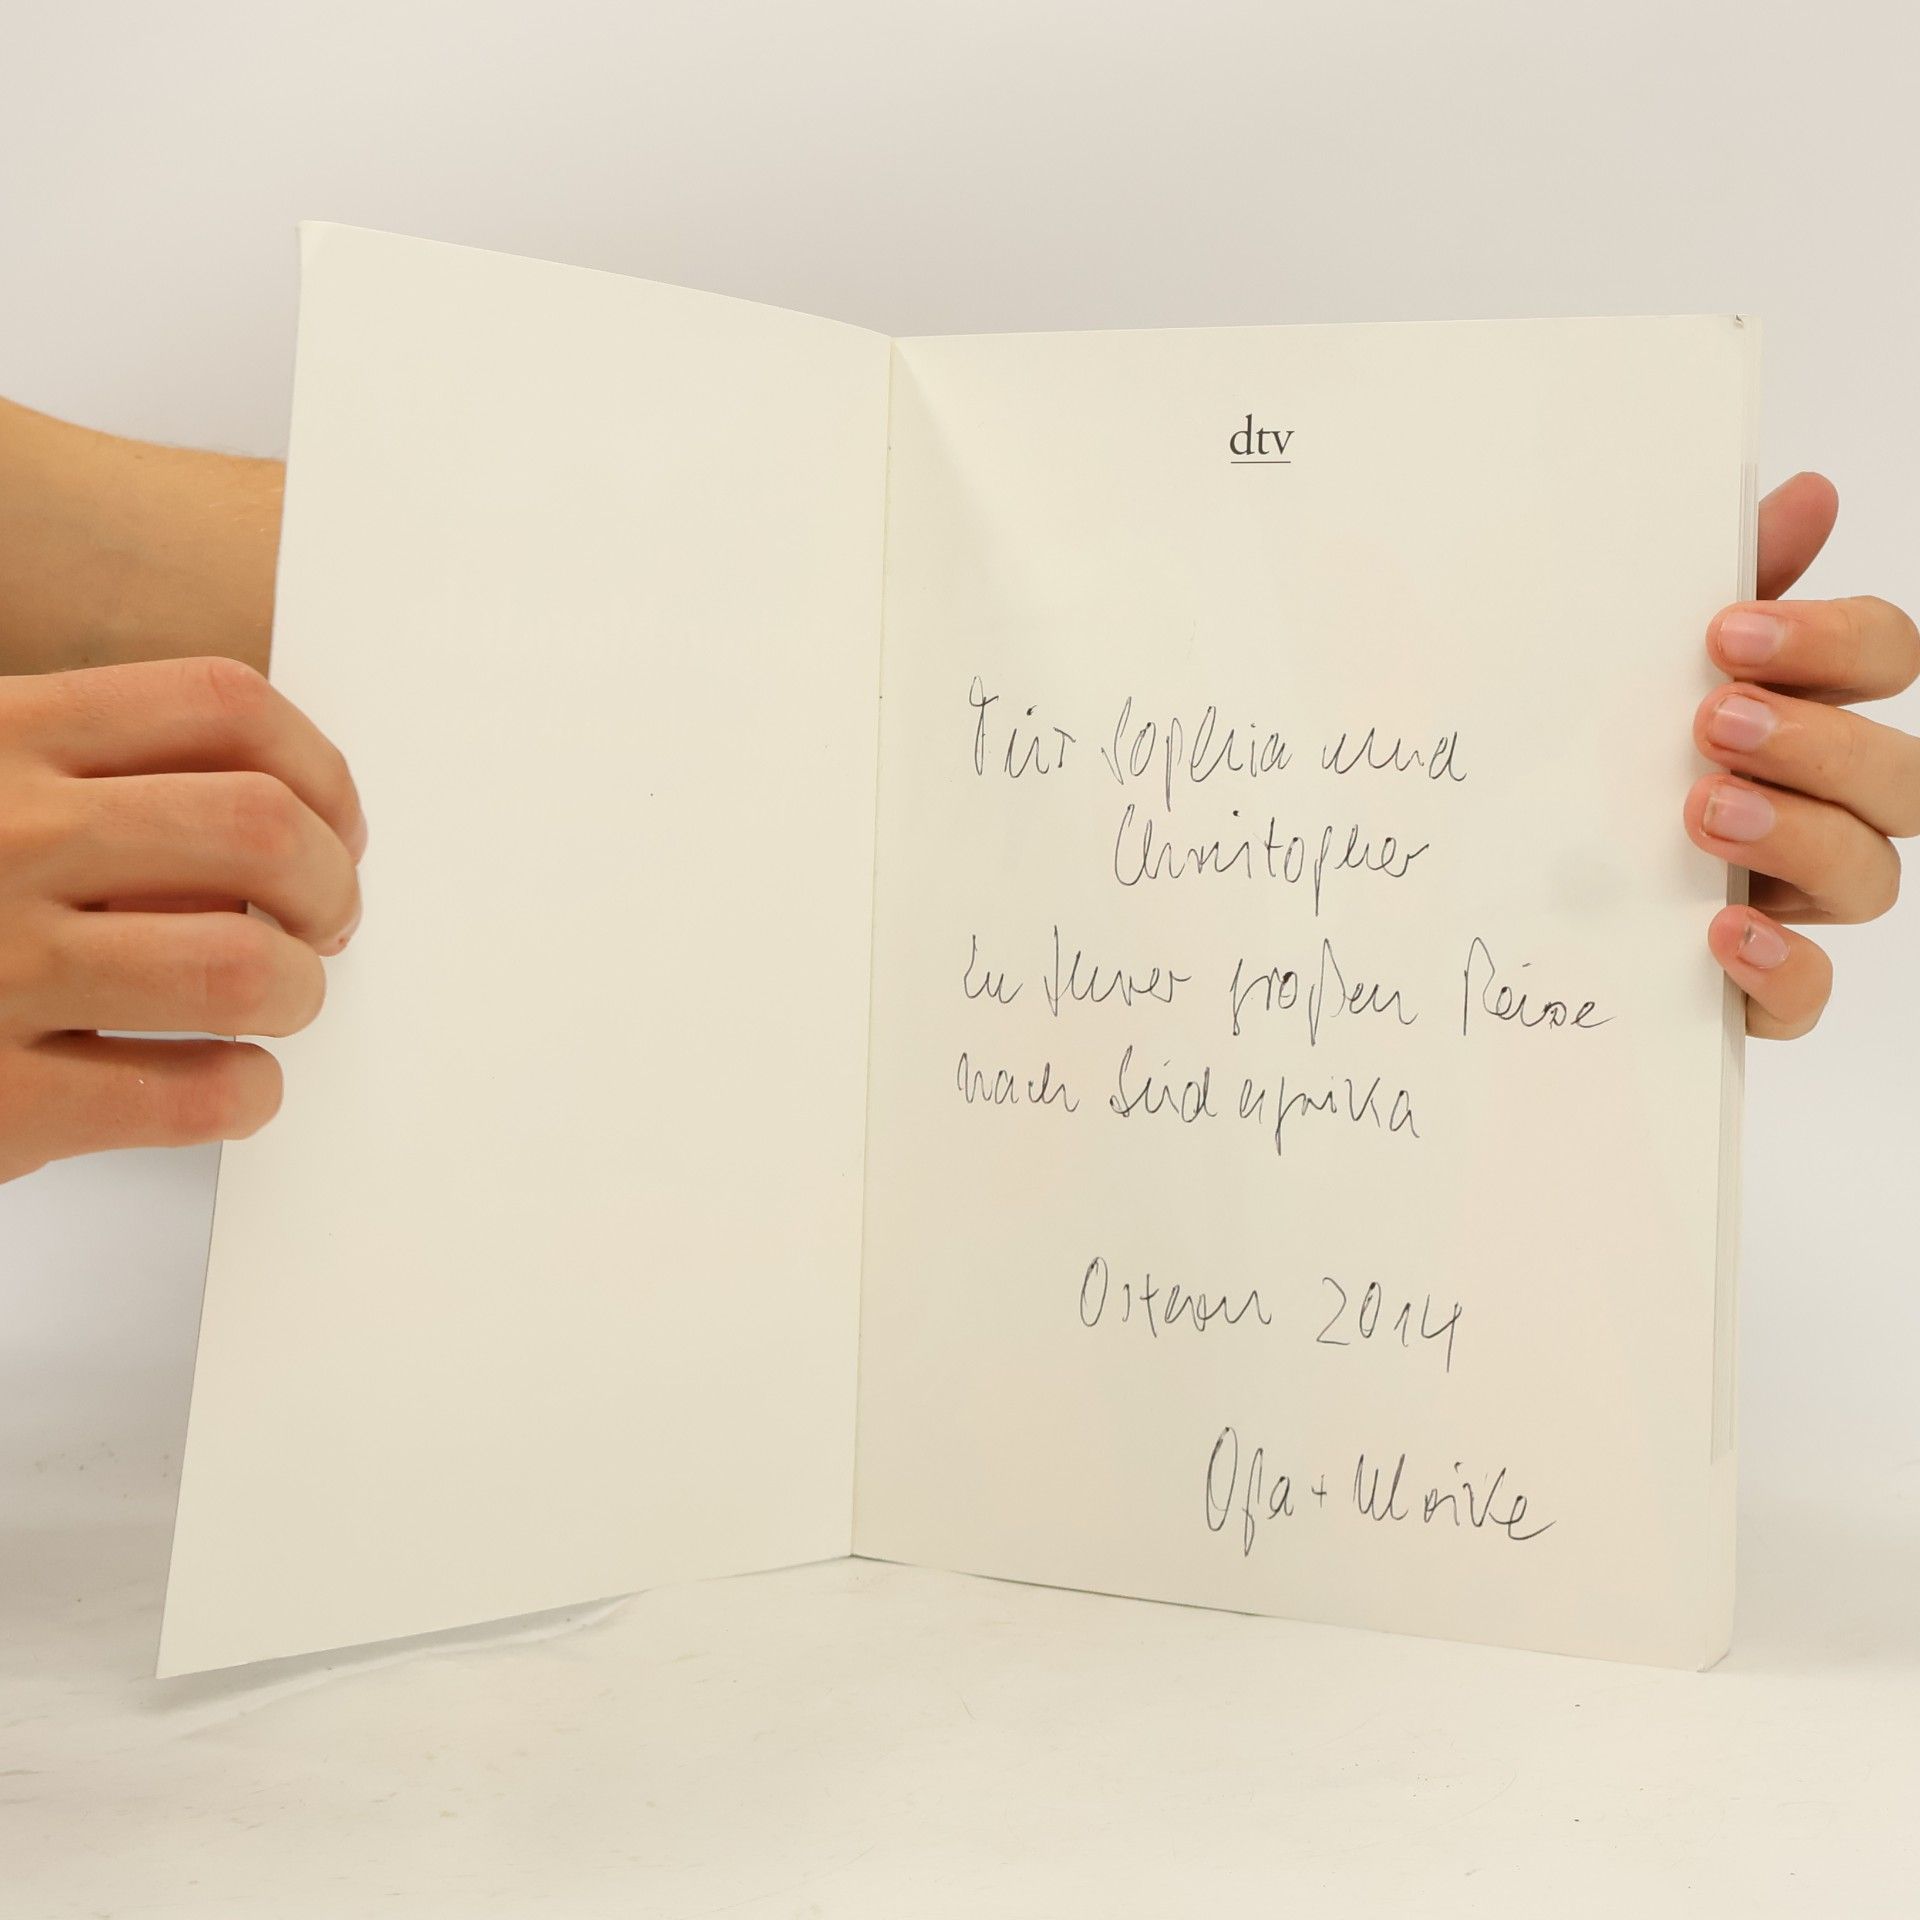 dtv
Für Sophia und
Christopher
zu Eurer großen Reise
nach Südafrika
Ostern 2014
Opa + Ulrike